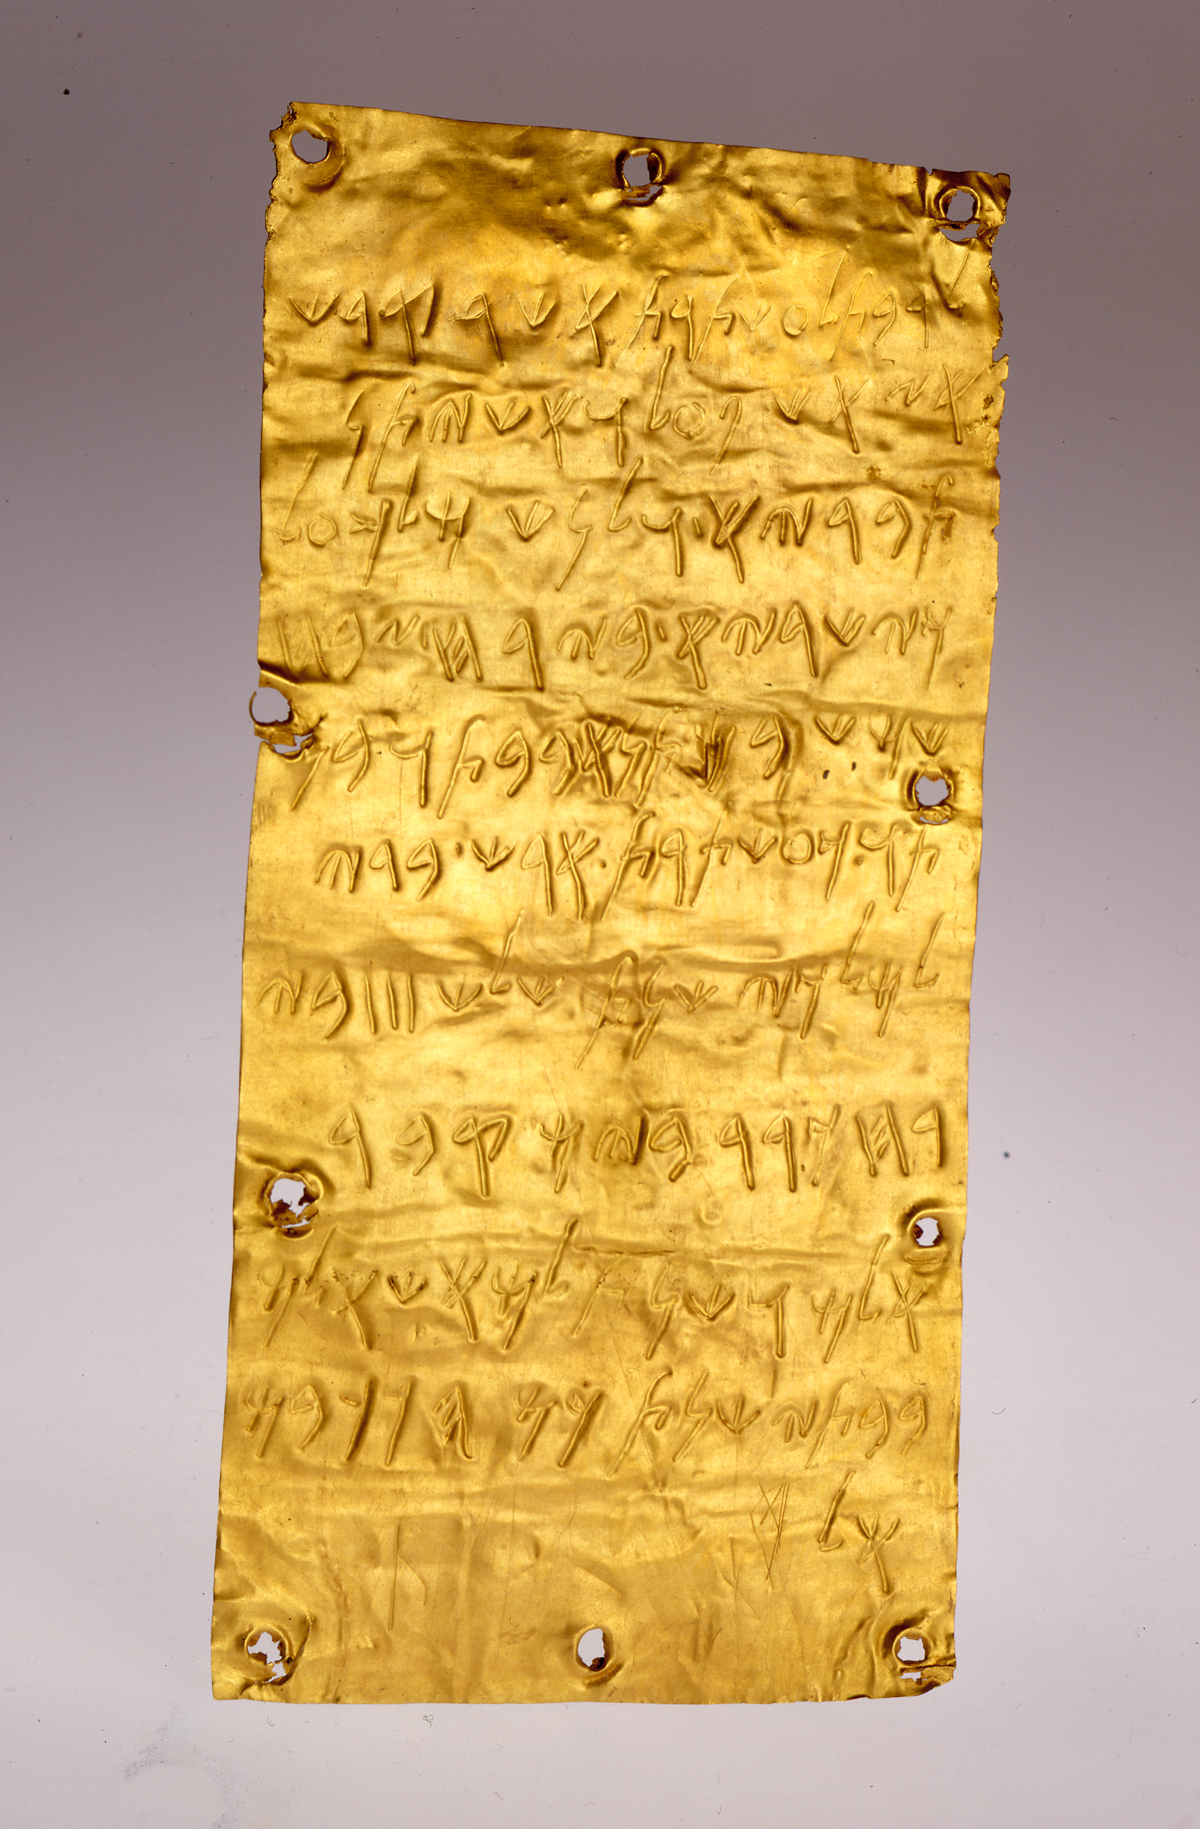 𐤋𐤓𐤁𐤕 𐤋𐤏𐤔𐤕𐤓𐤕 𐤀𐤔𐤓 𐤒𐤃𐤔
𐤀𐤆 𐤀𐤔 𐤐𐤏𐤋 𐤅𐤀𐤔 𐤉𐤕𐤍
𐤕𐤁𐤓𐤉𐤀𐤟𐤅𐤋𐤍𐤔 𐤌𐤋𐤊 𐤏𐤋
𐤊𐤉𐤔𐤓𐤉𐤀𐤟𐤁𐤉𐤓𐤇 𐤆𐤁𐤇
𐤔𐤌𐤔 𐤁𐤌𐤕𐤍𐤀 𐤁𐤁𐤕 𐤅𐤁𐤍
𐤕𐤅𐤟𐤊𐤏𐤔𐤕𐤓𐤕𐤟𐤀𐤓𐤔𐤟𐤁𐤃𐤉
𐤋𐤌𐤋𐤊𐤉 𐤔𐤍𐤕 𐤔𐤋𐤔 𐤛 𐤁𐤉
𐤓𐤇 𐤊𐤓𐤓 𐤁𐤉𐤌 𐤒𐤁𐤓
𐤀𐤋𐤌 𐤅𐤔𐤍𐤕 𐤋𐤌𐤀𐤔 𐤀𐤋𐤌
𐤁𐤁𐤕𐤉 𐤔𐤍𐤕 𐤊𐤌 𐤄𐤊𐤊𐤁𐤌
𐤀𐤋